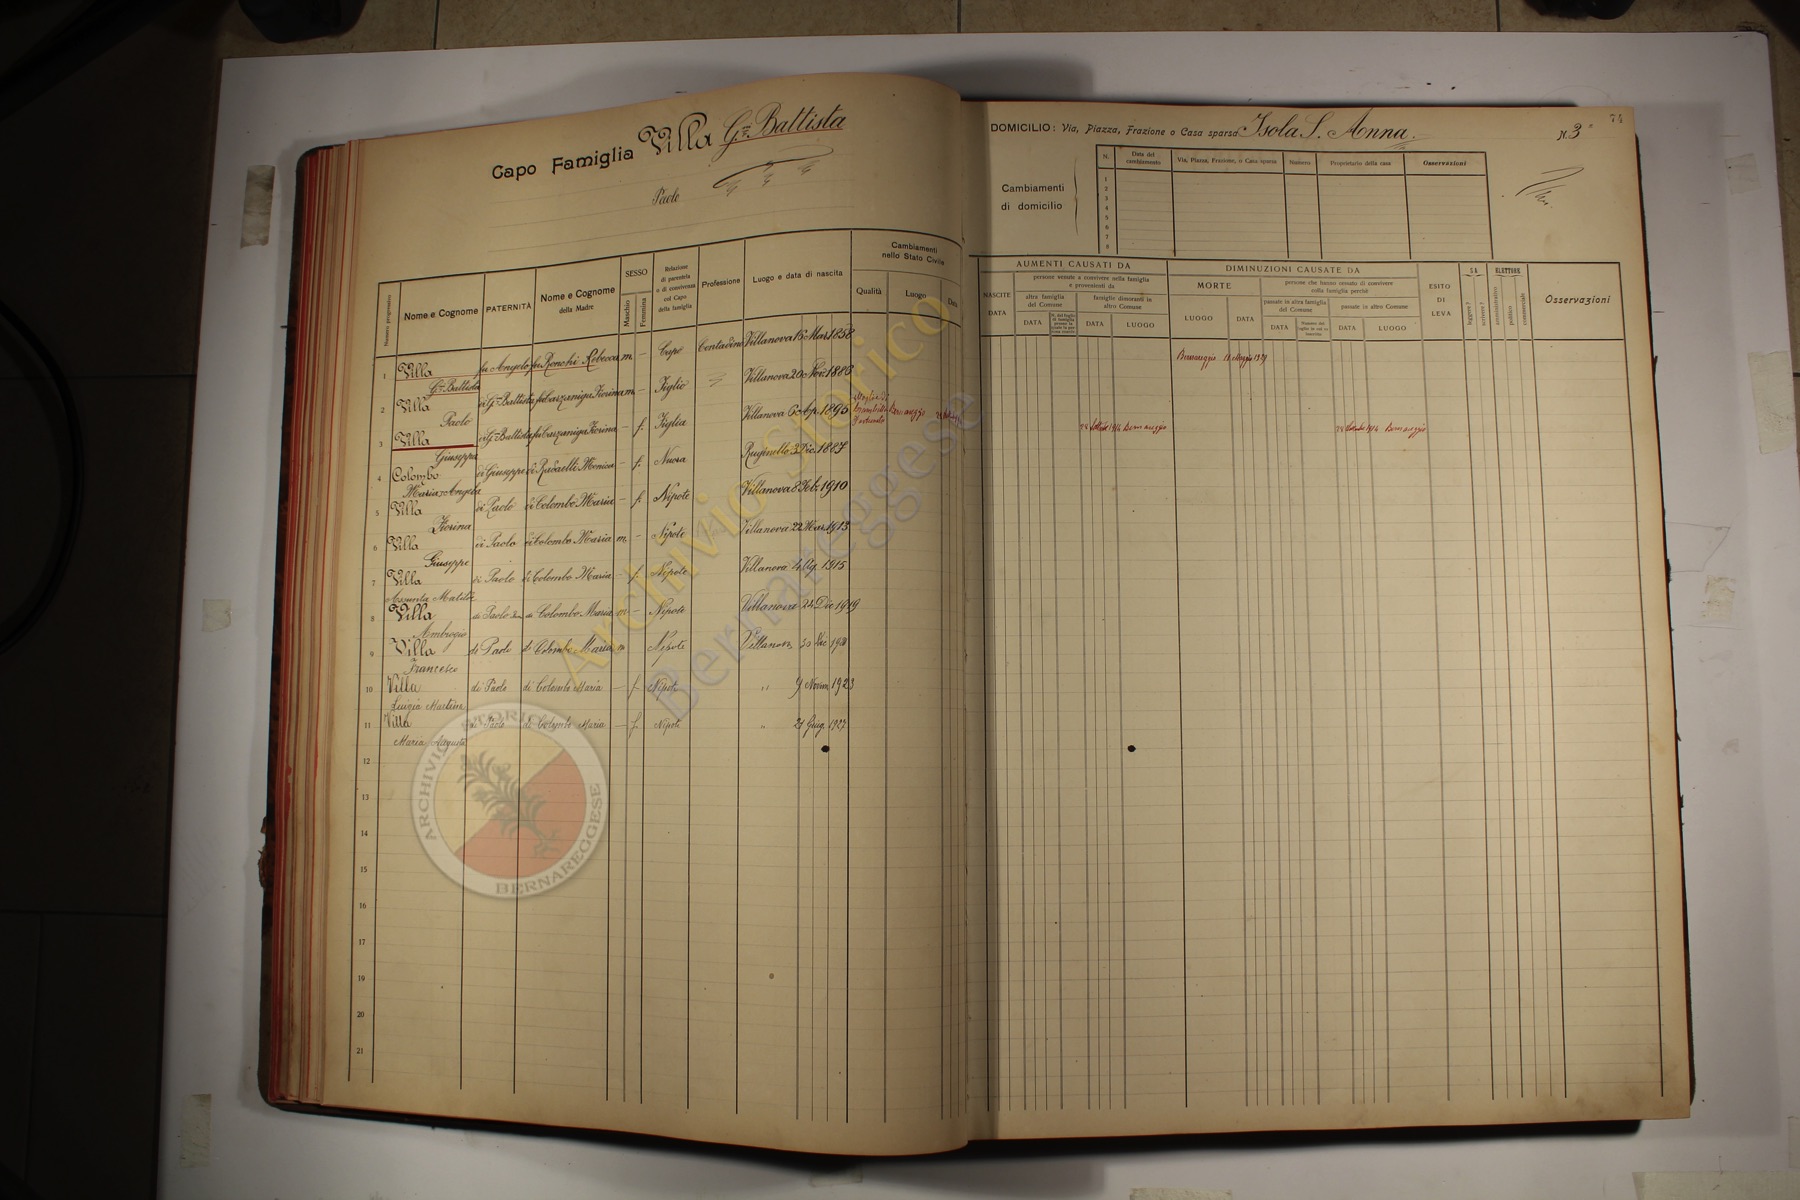 Capo Famiglia Villa G.ni Battista
Paolo
Numero progressivo
Nome e Cognome
PATERNITÀ
Nome e Cognome della Madre
SESSO
Maschio
Femmina
Relazione di parentela o di convivenza col Capo della famiglia
Professione
Luogo e data di nascita
Cambiamenti nello Stato Civile
Qualità
Luogo
Data
1 Villa fu Angelo fu Ronchi Rebecca m. – Capo Contadino Villanova 15 Mar. 1858
G.ni Battista
2 Villa di G.ni Battista fu Carzaniga Fiorina m. – Figlio Villanova 20 Nov. 1883
Paolo
3 Villa di G.ni Battista fu Carzaniga Fiorina – f. Figlia Villanova 6 Ap. 1895 Moglie di Bernareggio
Giuseppa
4 Colombo di Giuseppe di Radaelli Monica – f. Nuora Ruginello 3 Dic. 1887
Maria Angela
5 Villa di Paolo di Colombo Maria – f. Nipote Villanova 8 Feb. 1910
Fiorina
6 Villa di Paolo di Colombo Maria m – Nipote Villanova 22 Mar. 1913
Giuseppe
7 Villa di Paolo di Colombo Maria – f. Nipote Villanova 4 Ag. 1915
Assunta Matilde
8 Villa di Paolo di Colombo Maria m – Nipote Villanova 24 Dic 1919
Ambrogio
9 Villa di Paolo di Colombo Maria m Nipote Villanova 30 Dic 1920
Francesco
10 Villa di Paolo di Colombo Maria – f. Nipote " 9 Novem. 1923
Luigia Martina
11 Villa di Paolo di Colombo Maria – f. Nipote " 21 Giug. 1927
Maria Augusta
12
13
14
15
16
17
19
20
21
74
DOMICILIO: Via, Piazza, Frazione o Casa sparsa Isola S. Anna. N. 3
Cambiamenti di domicilio
N.
Data del cambiamento
Via, Piazza, Frazione, o Casa sparsa
Numero
Proprietario della casa
Osservazioni
1
2
3
4
5
6
7
8
AUMENTI CAUSATI DA
NASCITE
DATA
persone venute a convivere nella famiglia e provenienti da
altra famiglia del Comune
DATA
famiglie dimoranti in altro Comune
DATA
LUOGO
DIMINUZIONI CAUSATE DA
MORTE
LUOGO
DATA
persone che hanno cessato di convivere colla famiglia perchè
passate in altra famiglia del Comune
DATA
passate in altro Comune
DATA
LUOGO
ESITO DI LEVA
SA
leggere?
scrivere?
ELETTORE
amministrativo
politico
commerciale
Osservazioni
Bernareggio 1929
1914 Bernareggio
1914 Bernareggio
Archivio Storico
Bernareggese
ARCHIVIO STORICO BERNAREGGESE